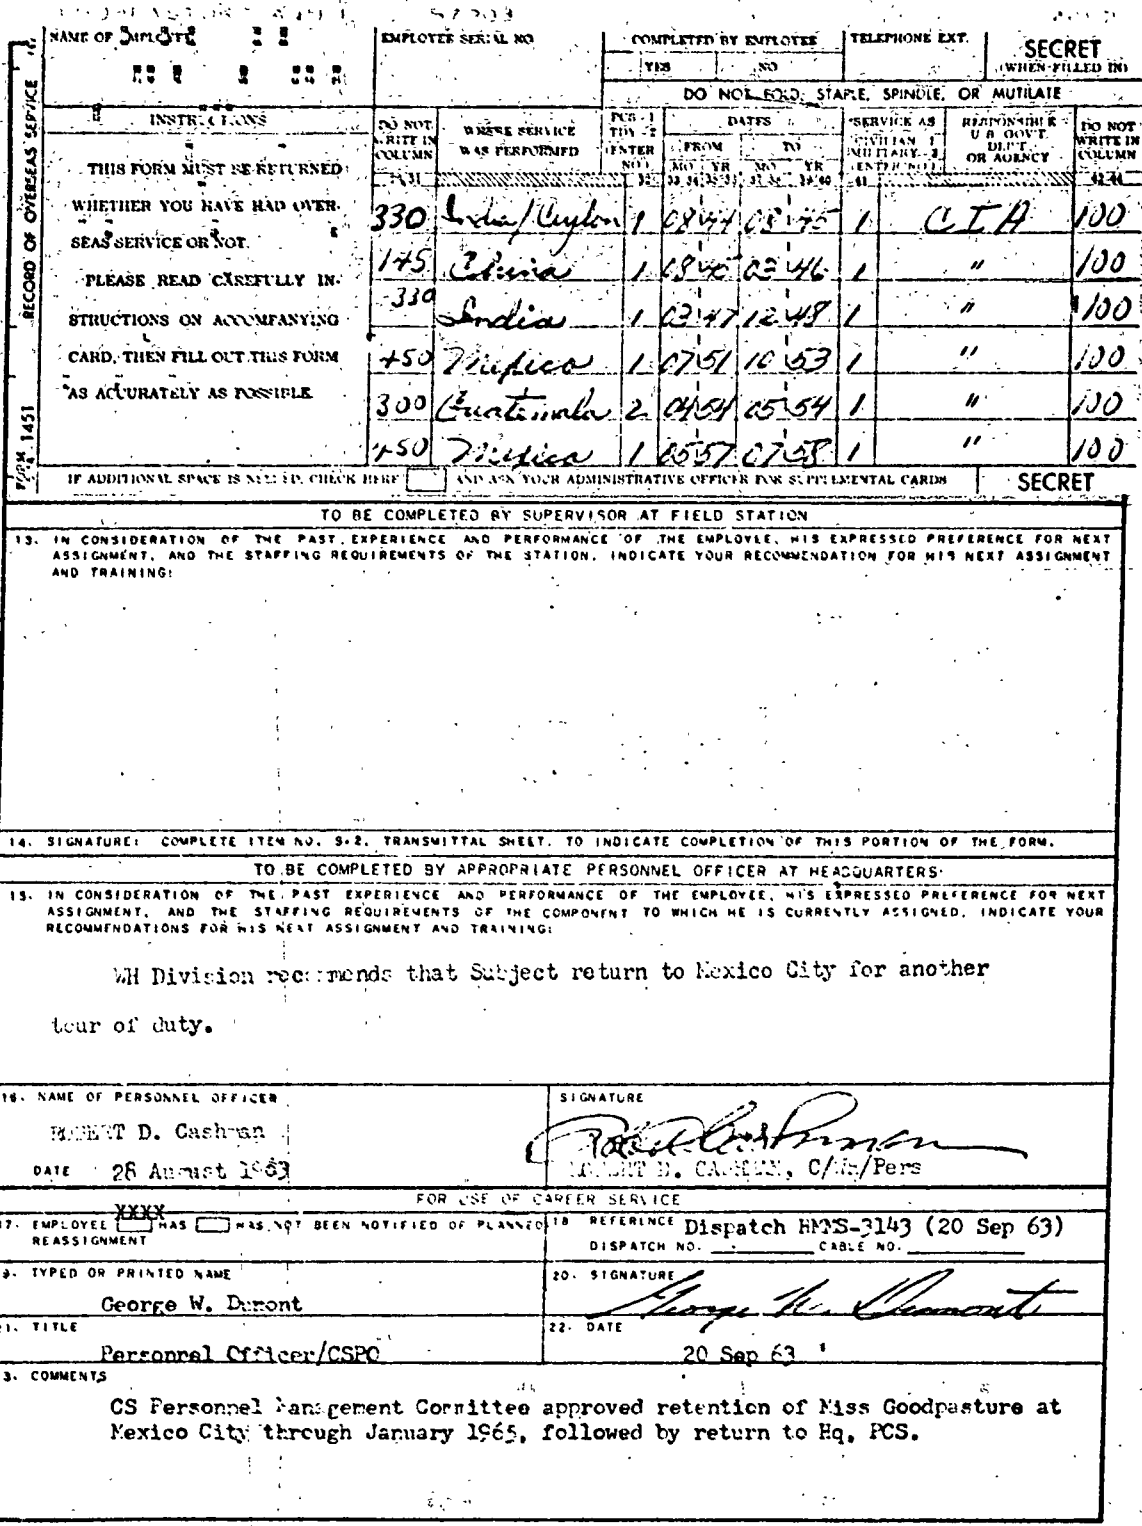 NAME OF EMPLOYEE
EMPLOYEE SERIAL NO
COMPLETED BY EMPLOYEE
YES NO
TELEPHONE EXT.
SECRET
(WHEN FILLED IN)
DO NOT FOLD, STAPLE, SPINDLE, OR MUTILATE
RECORD OF OVERSEAS SERVICE
FORM 1451
INSTRUCTIONS
THIS FORM MUST BE RETURNED
WHETHER YOU HAVE HAD OVER-
SEAS SERVICE OR NOT.
PLEASE READ CAREFULLY IN-
STRUCTIONS ON ACCOMPANYING
CARD, THEN FILL OUT THIS FORM
AS ACCURATELY AS POSSIBLE.
DO NOT WRITE IN COLUMN
WHERE SERVICE WAS PERFORMED
PCS - 1 TDY - 2 (ENTER NO.)
DATES
FROM TO
MO YR MO YR
SERVICE AS CIVILIAN - 1 MILITARY - 2 (ENTER NO.)
RESPONSIBLE U S GOV'T. DEPT. OR AGENCY
DO NOT WRITE IN COLUMN
330 India/Ceylon 1 08 44 08 45 1 CIA 100
145 China 1 08 45 02 46 1 " 100
330 India 1 03 47 12 48 1 " 100
450 Mexico 1 07 51 10 53 1 " 100
300 Guatemala 2 04 54 05 54 1 " 100
450 Mexico 1 05 57 07 58 1 " 100
IF ADDITIONAL SPACE IS NEEDED, CHECK HERE AND ASK YOUR ADMINISTRATIVE OFFICER FOR SUPPLEMENTAL CARDS
SECRET
TO BE COMPLETED BY SUPERVISOR AT FIELD STATION
13. IN CONSIDERATION OF THE PAST EXPERIENCE AND PERFORMANCE OF THE EMPLOYEE, HIS EXPRESSED PREFERENCE FOR NEXT
ASSIGNMENT, AND THE STAFFING REQUIREMENTS OF THE STATION, INDICATE YOUR RECOMMENDATION FOR HIS NEXT ASSIGNMENT
AND TRAINING:
14. SIGNATURE: COMPLETE ITEM NO. 5-2, TRANSMITTAL SHEET, TO INDICATE COMPLETION OF THIS PORTION OF THE FORM.
TO BE COMPLETED BY APPROPRIATE PERSONNEL OFFICER AT HEADQUARTERS
15. IN CONSIDERATION OF THE PAST EXPERIENCE AND PERFORMANCE OF THE EMPLOYEE, HIS EXPRESSED PREFERENCE FOR NEXT
ASSIGNMENT, AND THE STAFFING REQUIREMENTS OF THE COMPONENT TO WHICH HE IS CURRENTLY ASSIGNED, INDICATE YOUR
RECOMMENDATIONS FOR HIS NEXT ASSIGNMENT AND TRAINING:
WH Division recommends that Subject return to Mexico City for another
tour of duty.
16. NAME OF PERSONNEL OFFICER
SIGNATURE
ROBERT D. Cashman
Robert D. Cashman
DATE 28 August 1963
ROBERT D. CASHMAN, C/WH/Pers
FOR USE OF CAREER SERVICE
XXXX
17. EMPLOYEE HAS HAS NOT BEEN NOTIFIED OF PLANNED
REASSIGNMENT
18 REFERENCE Dispatch HMMS-3143 (20 Sep 63)
DISPATCH NO. CABLE NO.
9. TYPED OR PRINTED NAME
George W. Dumont
20. SIGNATURE
George W. Dumont
21. TITLE
Personnel Officer/CSPO
22. DATE
20 Sep 63
3. COMMENTS
CS Personnel Management Committee approved retention of Miss Goodpasture at
Mexico City through January 1965, followed by return to Hq, PCS.